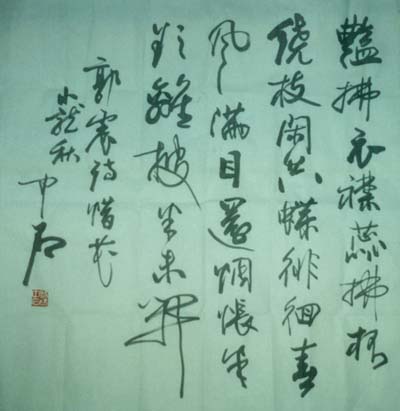 豔拂衣襟蕊拂杯
繞枝閑共蝶徘徊春
風滿目還惆悵半
欲離披半未開
郭震詩惜花
小龍秋
中石